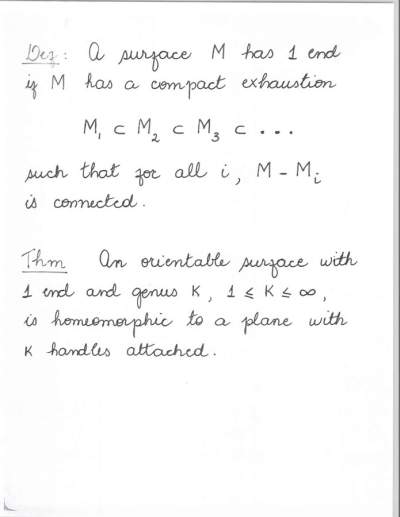 Def: A surface M has 1 end
if M has a compact exhaustion
M₁ ⊂ M₂ ⊂ M₃ ⊂ ...
such that for all i, M - Mᵢ
is connected.
Thm An orientable surface with
1 end and genus K, 1 ≤ K ≤ ∞,
is homeomorphic to a plane with
K handles attached.